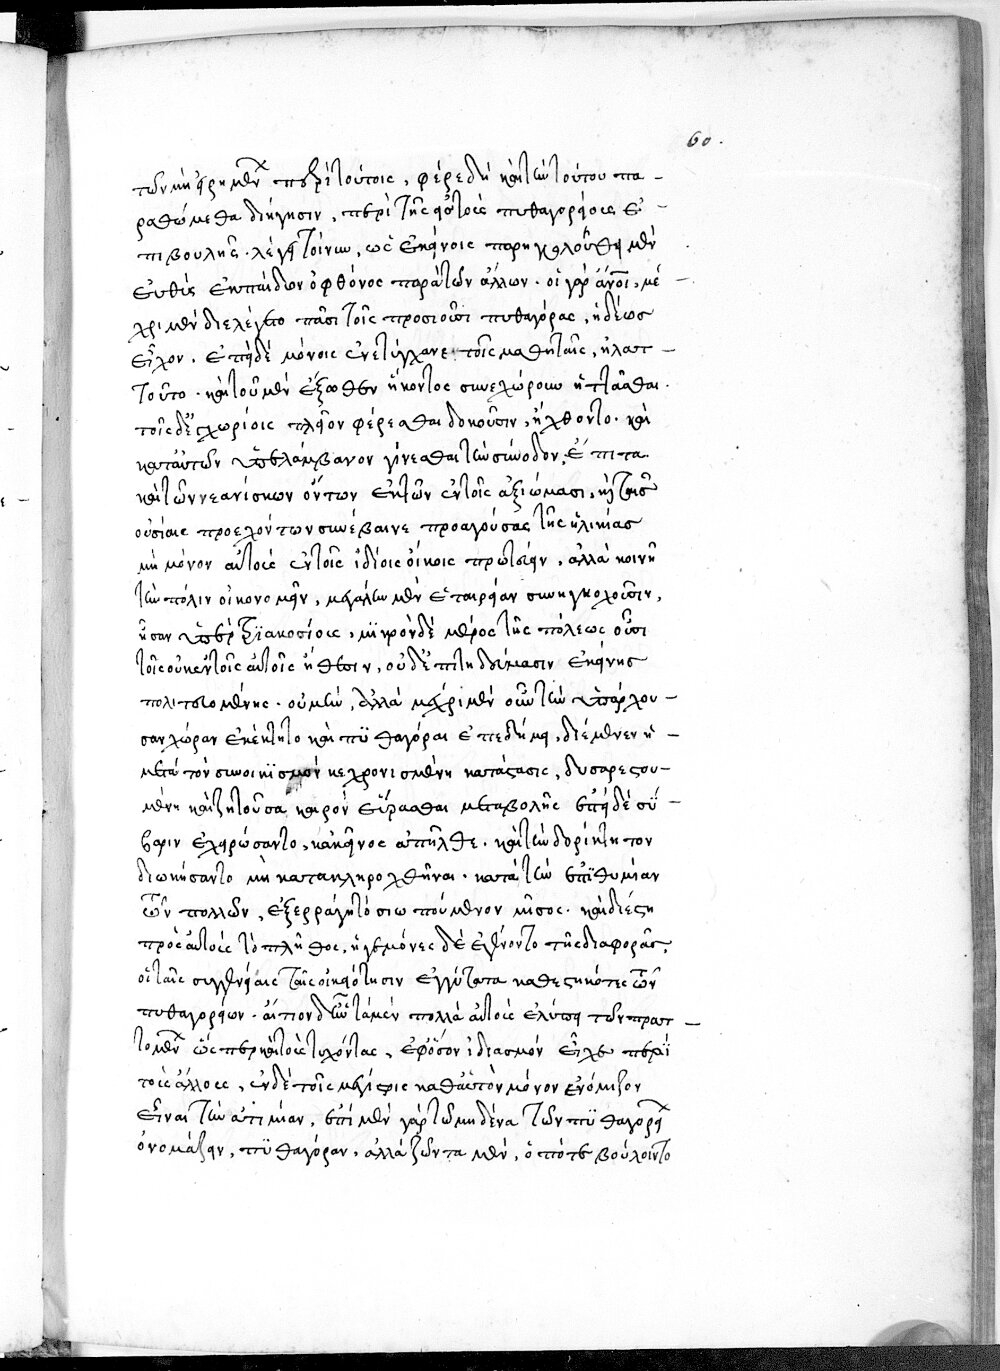 60.
των εἰρημένων περὶ τούτοις, φέρε δὴ καὶ τὴν τούτου πα-
ραθώμεθα διήγησιν, περὶ τῆς τοῖς πυθαγορείοις ἐ-
πιβουλῆς. λέγει τοίνυν, ὡς ἐκείνοις παρηκολούθει μὲν
εὐθὺς ἐκ παίδων ὁ φθόνος παρὰ τῶν ἄλλων. οἱ γὰρ ἄνοι, μέ-
χρι μὲν διελέγετο πᾶσι τοῖς προσιοῦσι πυθαγόρας, ἡδέως
εἶχον. ἐπεὶ δὲ μόνοις ἐνετύγχανε τοῖς μαθηταῖς, ἠλατ-
τοῦτο. καὶ τοῦ μὲν ἔξωθεν ἥκοντος συνεχώρουν ἡττᾶσθαι.
τοῖς δ' ἐγχωρίοις πλεῖον φέρεσθαι δοκοῦσιν, ἤχθοντο. καὶ
κατ' αὐτῶν ὑπελάμβανον γίνεσθαι τὴν σύνοδον, ἔπειτα
καὶ τῶν νεανίσκων ὄντων ἐκ τῶν ἐν τοῖς ἀξιώμασι, καὶ ταῖς
οὐσίαις προεχόντων συνέβαινε προαγούσας τῆς ἡλικίας
μὴ μόνον αὐτοὺς ἐν τοῖς ἰδίοις οἴκοις πρωτεύειν, ἀλλὰ κοινῇ
τὴν πόλιν οἰκονομεῖν, μεγάλην μὲν ἑταιρείαν συνηγκολοῦσιν,
ἦσαν ὑπὲρ τριακοσίοις, μικρὸν δὲ μέρος τῆς πόλεως οὖσι
τοῖς οὐκ ἐν τοῖς αὐτοῖς ἤθεσιν, οὐδ' ἐπιτηδεύμασιν ἐκείνης
πολιτευομένης. οὐ μὴν, ἀλλὰ μέχρι μὲν οὖν τὴν ὑπάρχου-
σαν χώραν ἐκέκτητο καὶ πυθαγόρας ἐπεδήμει, διέμενεν ἡ-
μετὰ τὸν συνοικισμὸν κεχρονισμένη κατάστασις, δυσαρεστου-
μένη καὶ ζητοῦσα καιρὸν εὑρᾶσθαι μεταβολῆς ἐπεὶ δὲ σύ-
βαριν ἐχειρώσαντο, κἀκεῖνος ἀπῆλθε. καὶ τὴν δορίκτητον
διωκήσαντο μὴ κατακληρουχθῆναι. κατὰ τὴν ἐπιθυμίαν
τῶν πολλῶν, ἐξερράγη τὸ σιωπούμενον μῖσος. καὶ διέστη
πρὸς αὐτοὺς τὸ πλῆθος, ἡγεμόνες δὲ ἐγένοντο τῆς διαφορᾶς,
οἱ ταῖς συγγενείαις ταῖς οἰκειότησιν ἐγγύτατα καθεστηκότες τῶν
πυθαγορείων. αἴτιον δ' ὅτι τὰ μὲν πολλὰ αὐτοὺς ἐλύπει τῶν πρατ-
τομένων ὥσπερ καὶ τοὺς τυχόντας, ἐφ' ὅσον ἰδιασμὸν εἶχε παρὰ
τοὺς ἄλλους, ἐν δὲ τοῖς μεγίστοις καθ' αὑτῶν μόνον ἐνόμιζον
εἶναι τὴν ἀτιμίαν, ἐπὶ μὲν γὰρ τῷ μηδένα τῶν πυθαγορείων
ὀνομάζειν, πυθαγόραν, ἀλλὰ ζῶντα μὲν, ὁπότε βούλοιντο